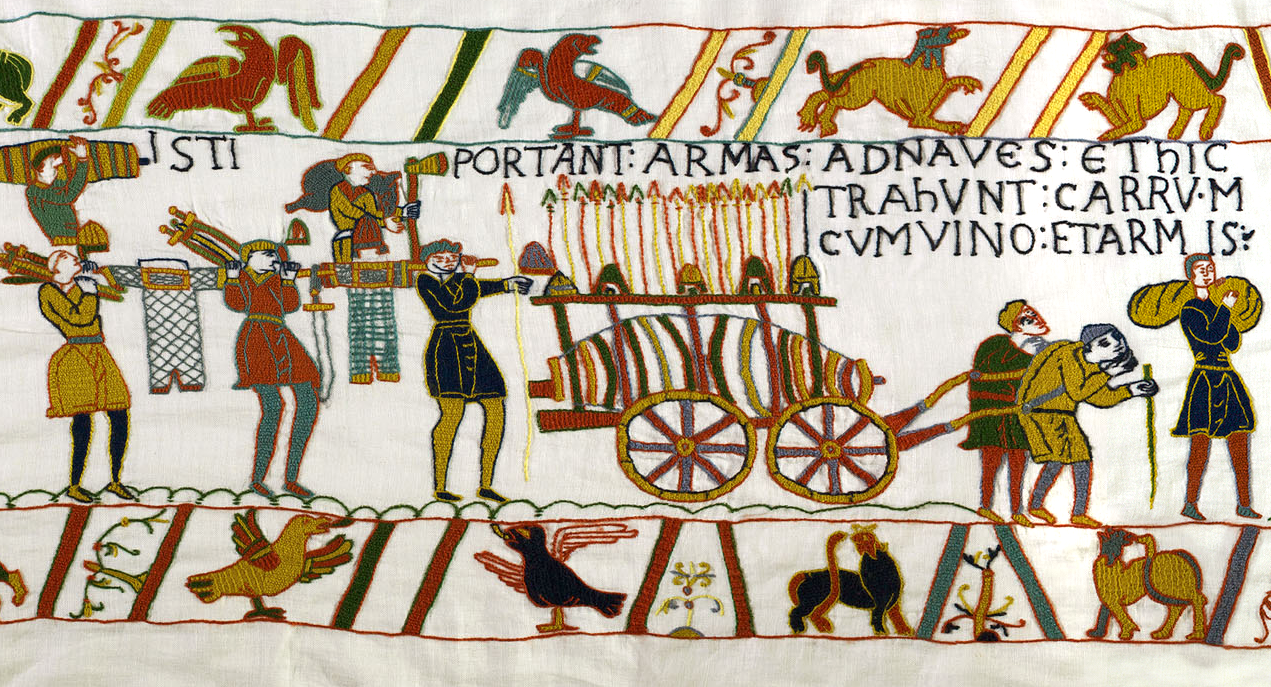 ISTI PORTANT: ARMAS: ADNAVES: EThIC
TRAhVNT: CARRV·M
CVMVINO: ETARMIS: